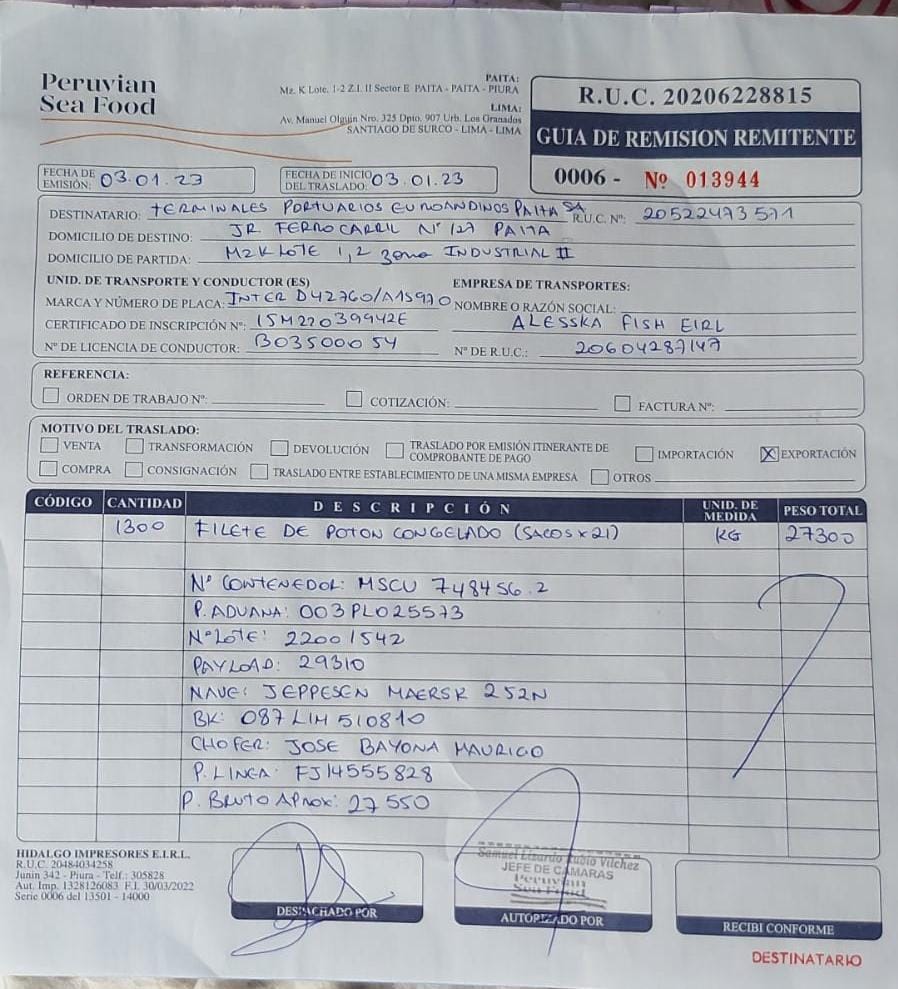 Peruvian
Sea Food
PAITA:
Mz. K Lote. 1-2 Z.I. II Sector E PAITA - PAITA - PIURA
LIMA:
Av. Manuel Olguin Nro. 325 Dpto. 907 Urb. Los Granados
SANTIAGO DE SURCO - LIMA - LIMA
R.U.C. 20206228815
GUIA DE REMISION REMITENTE
0006 - Nº 013944
FECHA DE EMISIÓN: 03.01.23
FECHA DE INICIO DEL TRASLADO: 03.01.23
DESTINATARIO: TERMINALES PORTUARIOS EUROANDINOS PAITA SA R.U.C. Nº: 20522473571
DOMICILIO DE DESTINO: JR FERROCARRIL Nº 127 PAITA
DOMICILIO DE PARTIDA: MZ K LOTE 1,2 zona INDUSTRIAL II
UNID. DE TRANSPORTE Y CONDUCTOR (ES) EMPRESA DE TRANSPORTES:
MARCA Y NÚMERO DE PLACA: INTER D42760/A1S970 NOMBRE O RAZÓN SOCIAL:
CERTIFICADO DE INSCRIPCIÓN Nº: 15M22039942E ALESSKA FISH EIRL
Nº DE LICENCIA DE CONDUCTOR: B03500054 Nº DE R.U.C.: 20604287147
REFERENCIA:
ORDEN DE TRABAJO Nº: COTIZACIÓN: FACTURA Nº:
MOTIVO DEL TRASLADO:
VENTA TRANSFORMACIÓN DEVOLUCIÓN TRASLADO POR EMISIÓN ITINERANTE DE COMPROBANTE DE PAGO IMPORTACIÓN X EXPORTACIÓN
COMPRA CONSIGNACIÓN TRASLADO ENTRE ESTABLECIMIENTO DE UNA MISMA EMPRESA OTROS
CÓDIGO CANTIDAD DESCRIPCIÓN UNID. DE MEDIDA PESO TOTAL
1300 FILETE DE POTON CONGELADO (SACOS x 21) KG 27300
Nº CONTENEDOR: MSCU 748456.2
P. ADUANA: 003PL025573
Nº LOTE: 22001542
PAYLOAD: 29310
NAVE: JEPPESEN MAERSK 252N
BK: 087LIM510810
CHOFER: JOSE BAYONA MAURICIO
P. LINEA: FJ14555828
P. BRUTO APROX: 27550
HIDALGO IMPRESORES E.I.R.L.
R.U.C. 20484034258
Junin 342 - Piura - Telf.: 305828
Aut. Imp. 1328126083 F.I. 30/03/2022
Serie 0006 del 13501 - 14000
DESPACHADO POR
Samuel Lizardo Rubio Vilchez
JEFE DE CAMARAS
Peruvian
Sea Food
AUTORIZADO POR
RECIBI CONFORME
DESTINATARIO